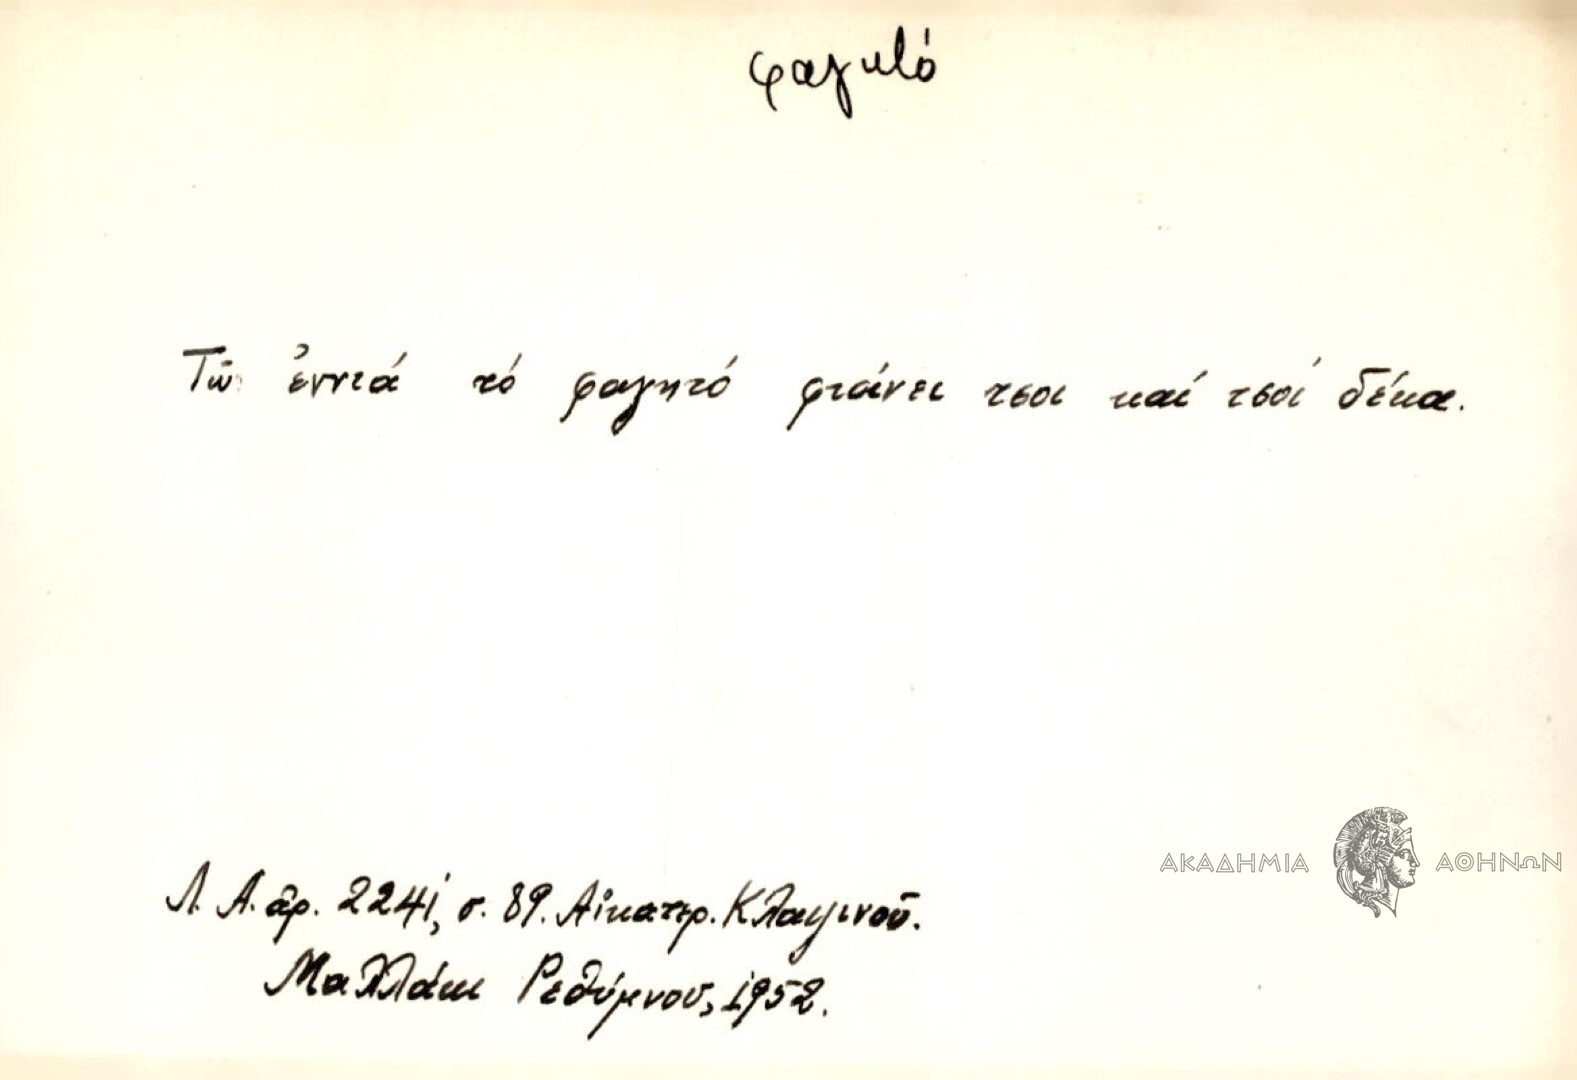 φαγητό
Τῶ ἐννιά τό φαγητό φτάνει τσοι καί τσοί δέκα.
Λ. Α. ἀρ. 2241, σ. 89. Αἰκατερ. Κλαψινοῦ.
Μαλλάκι Ρεθύμνου, 1952.
ΑΚΑΔΗΜΙΑ ΑΘΗΝΩΝ